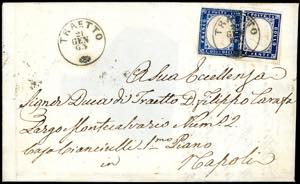 TRAETTO
21
GEN
63
TRAETTO
A Sua Eccellenza
Signor Duca di Traetto D. Filippo Carafa
Largo Montecalvario Num. 22
Casa Ciancirelle 1mo Piano
in
Napoli